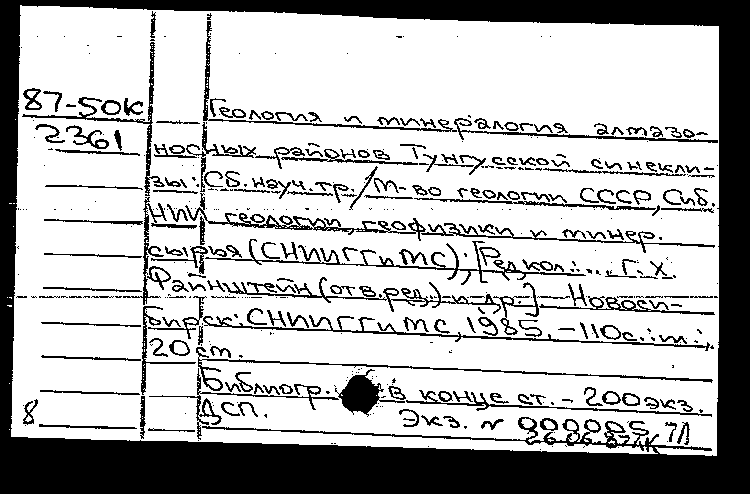 87-50к
2361
Геология и минералогия алмазо-
носных районов Тунгусской синекли-
зы: Сб. науч. тр. / М-во геологии СССР, Сиб.
НИИ геологии, геофизики и минер.
сырья (СНИИГГиМС); [Редкол.: ... Г. Х.
Файнштейн (отв. ред.) и др.]. - Новоси-
бирск: СНИИГГиМС, 1985. - 110 с.: ил.;
20 см.
Библиогр. в конце ст. - 200 экз.
ДСП. Экз. № 000005
8